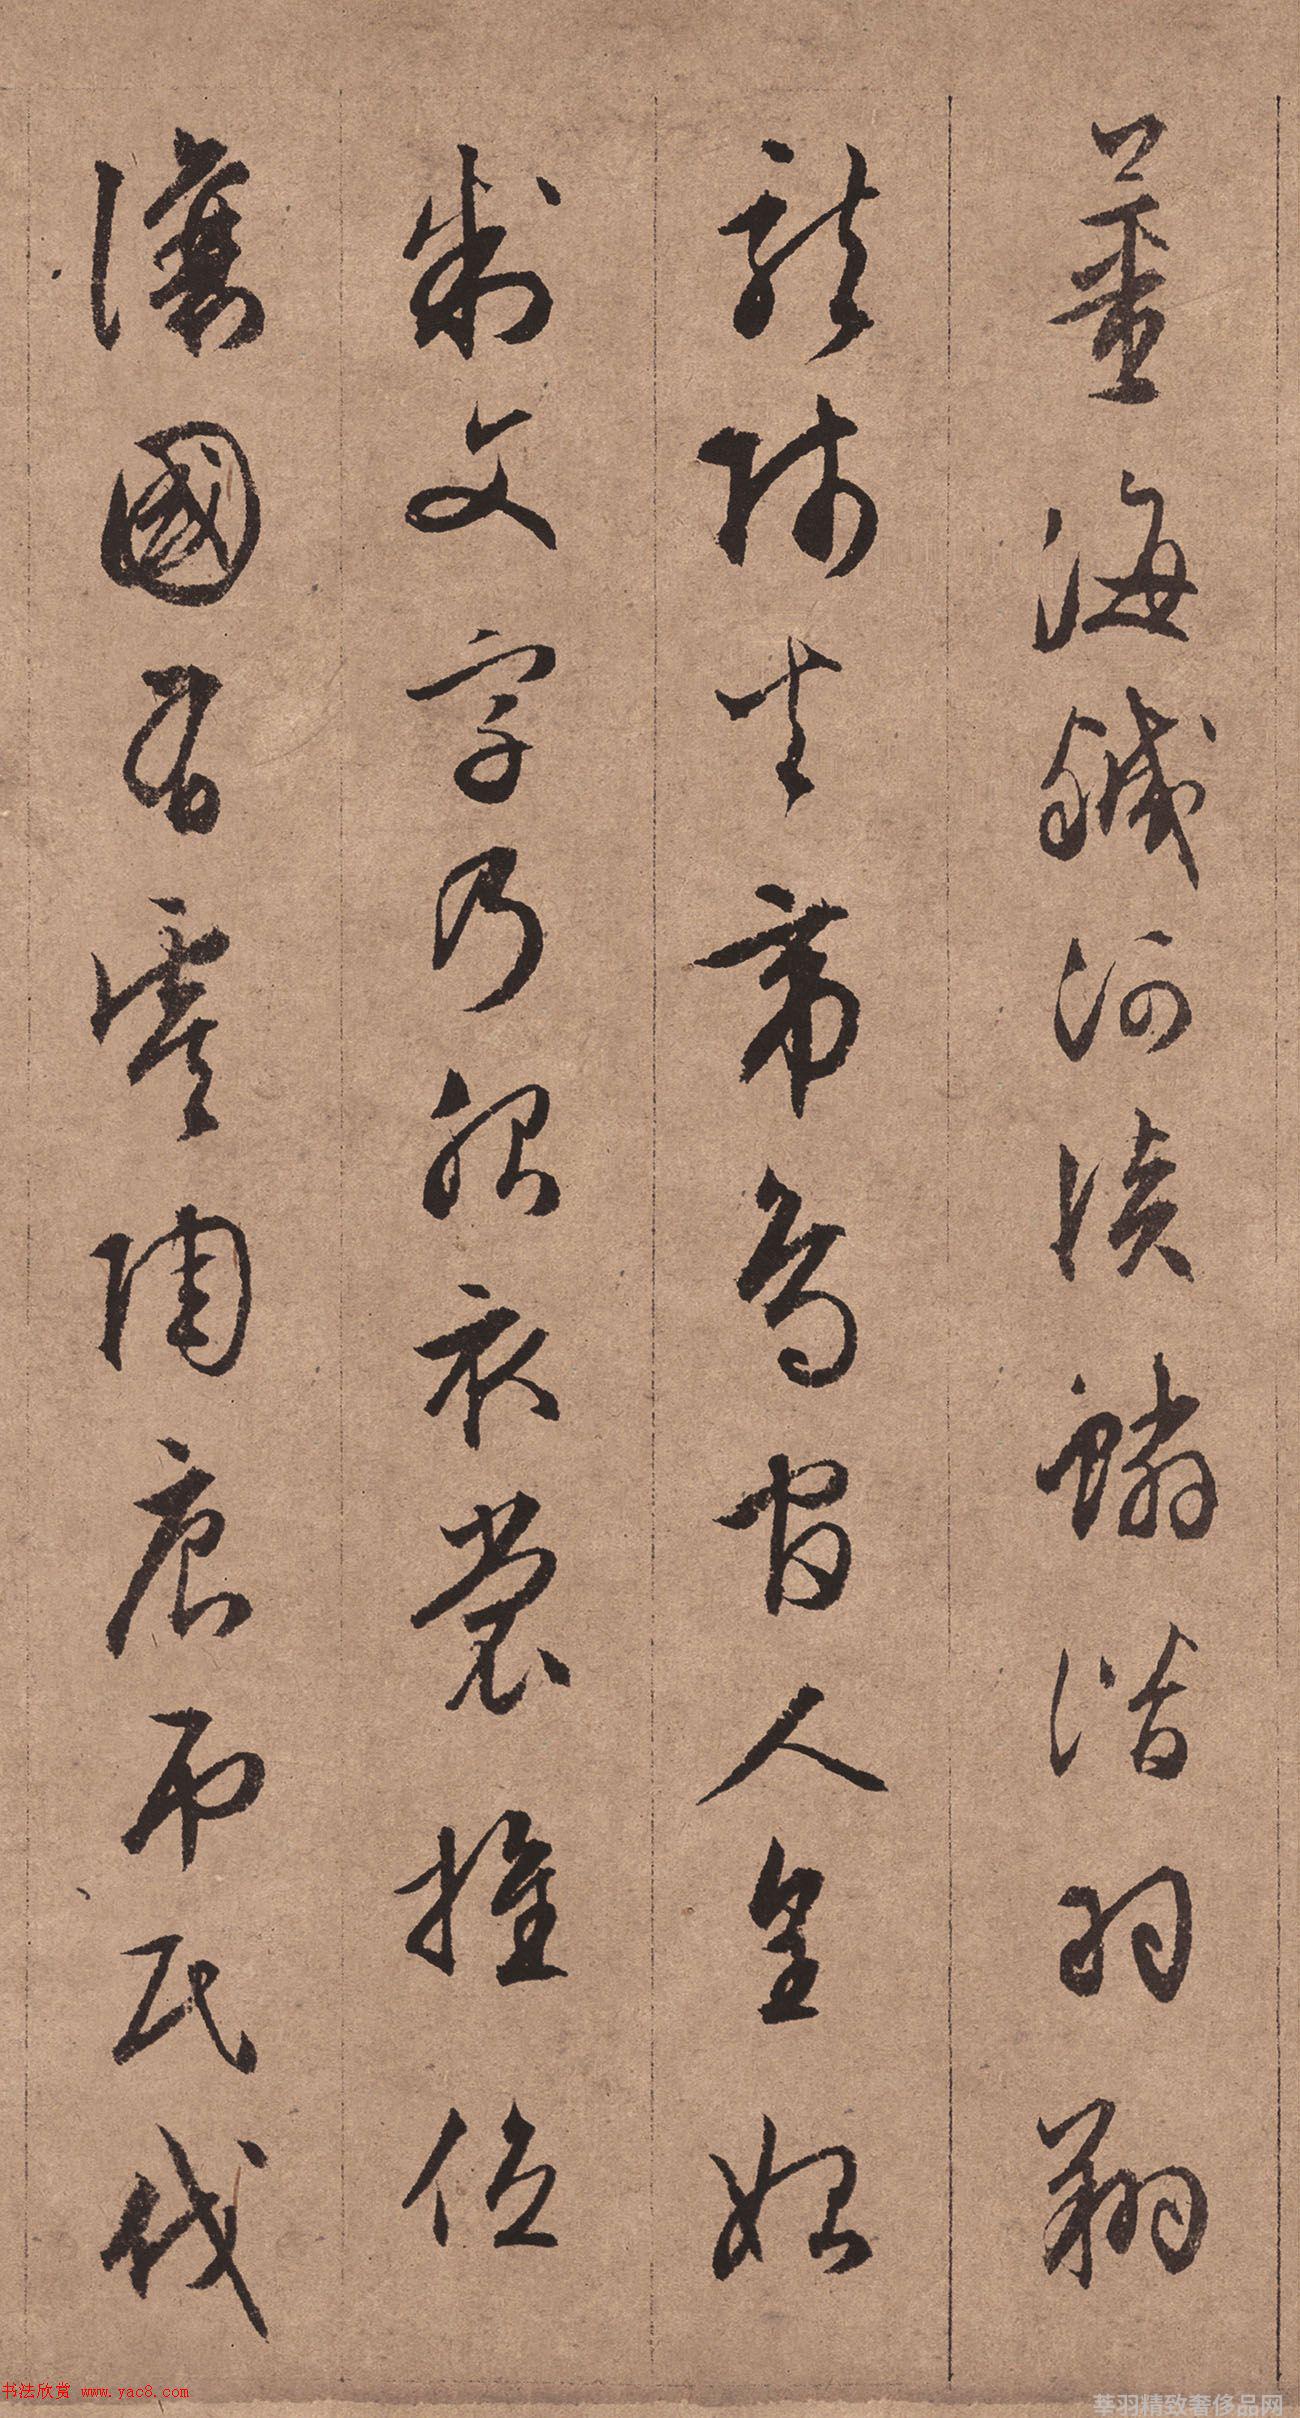 薑海鹹河淡鱗潛羽翔
龍師火帝鳥官人皇始
制文字乃服衣裳推位
讓國有虞陶唐弔民伐
书法欣赏 www.yac8.com
莘羽精致奢侈品网